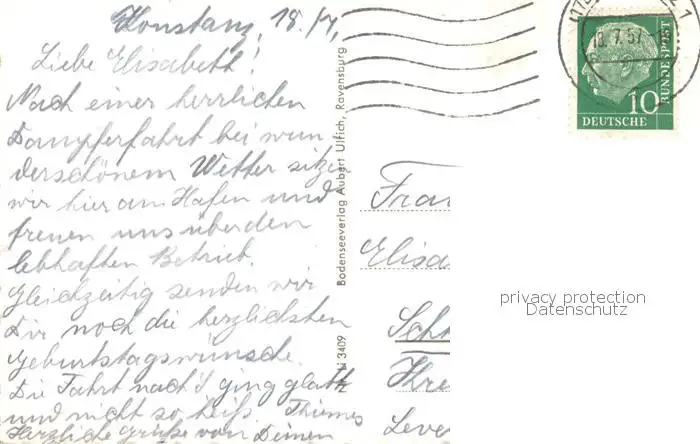 Konstanz, 18./7,
Liebe Elisabeth!
Nach einer herrlichen
Dampferfahrt bei wun
derschönem Wetter sitzen
wir hier am Hafen und
freuen uns über den
lebhaften Betrieb.
Gleichzeitig senden wir
Dir noch die herzlichsten
Geburtstagswünsche.
Die Fahrt nach ging glatt
und nicht so heiß. Thiemes
Herzliche Grüße von Deinen
Bodenseeverlag Aubert Ulrich, Ravensburg
3409
18.7.57
10
DEUTSCHE
BUNDESPOST
Frau
Elisa
Sch
privacy protection
Datenschutz